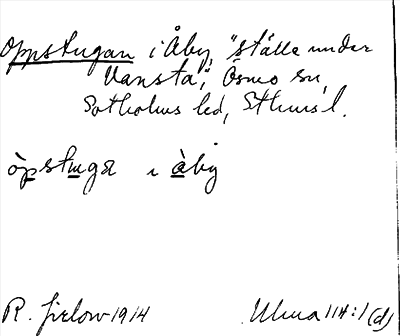 Oppstugan i Åby, "ställe under
Vansta", Ösmo sn,
Sotholms hd, Sthms l.
òpstuga i àby
R. Jirlow 1914
Ulma 114:1 (d)